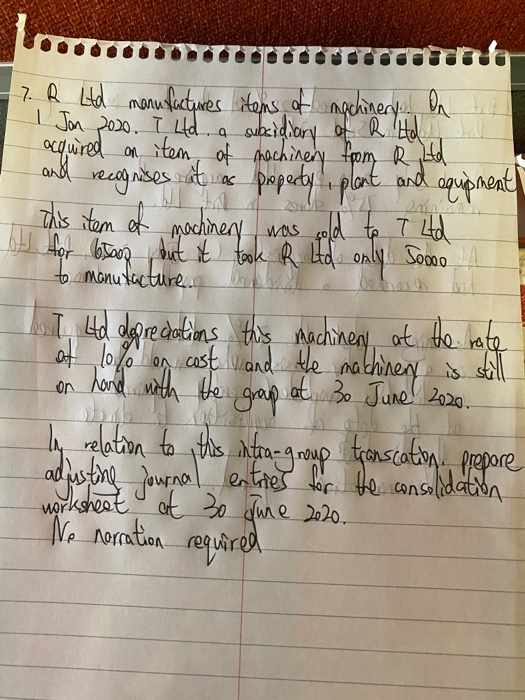 7. R Ltd manufactures items of machinery. On
1 Jan 2020. T Ltd. a subsidiary of R Ltd
acquired an item of machinery from R Ltd
and recognises it as property, plant and equipment
This item of machinery was sold to T Ltd
for 65000, but it took R Ltd only 50000
to manufacture.
T Ltd depreciations this machinery at the rate
of 10% on cost and the machinery is still
on hand with the group at 30 June 2020.
In relation to this intra-group transcation. prepare
adjusting journal entries for the consolidation
worksheet at 30 June 2020.
No narration required